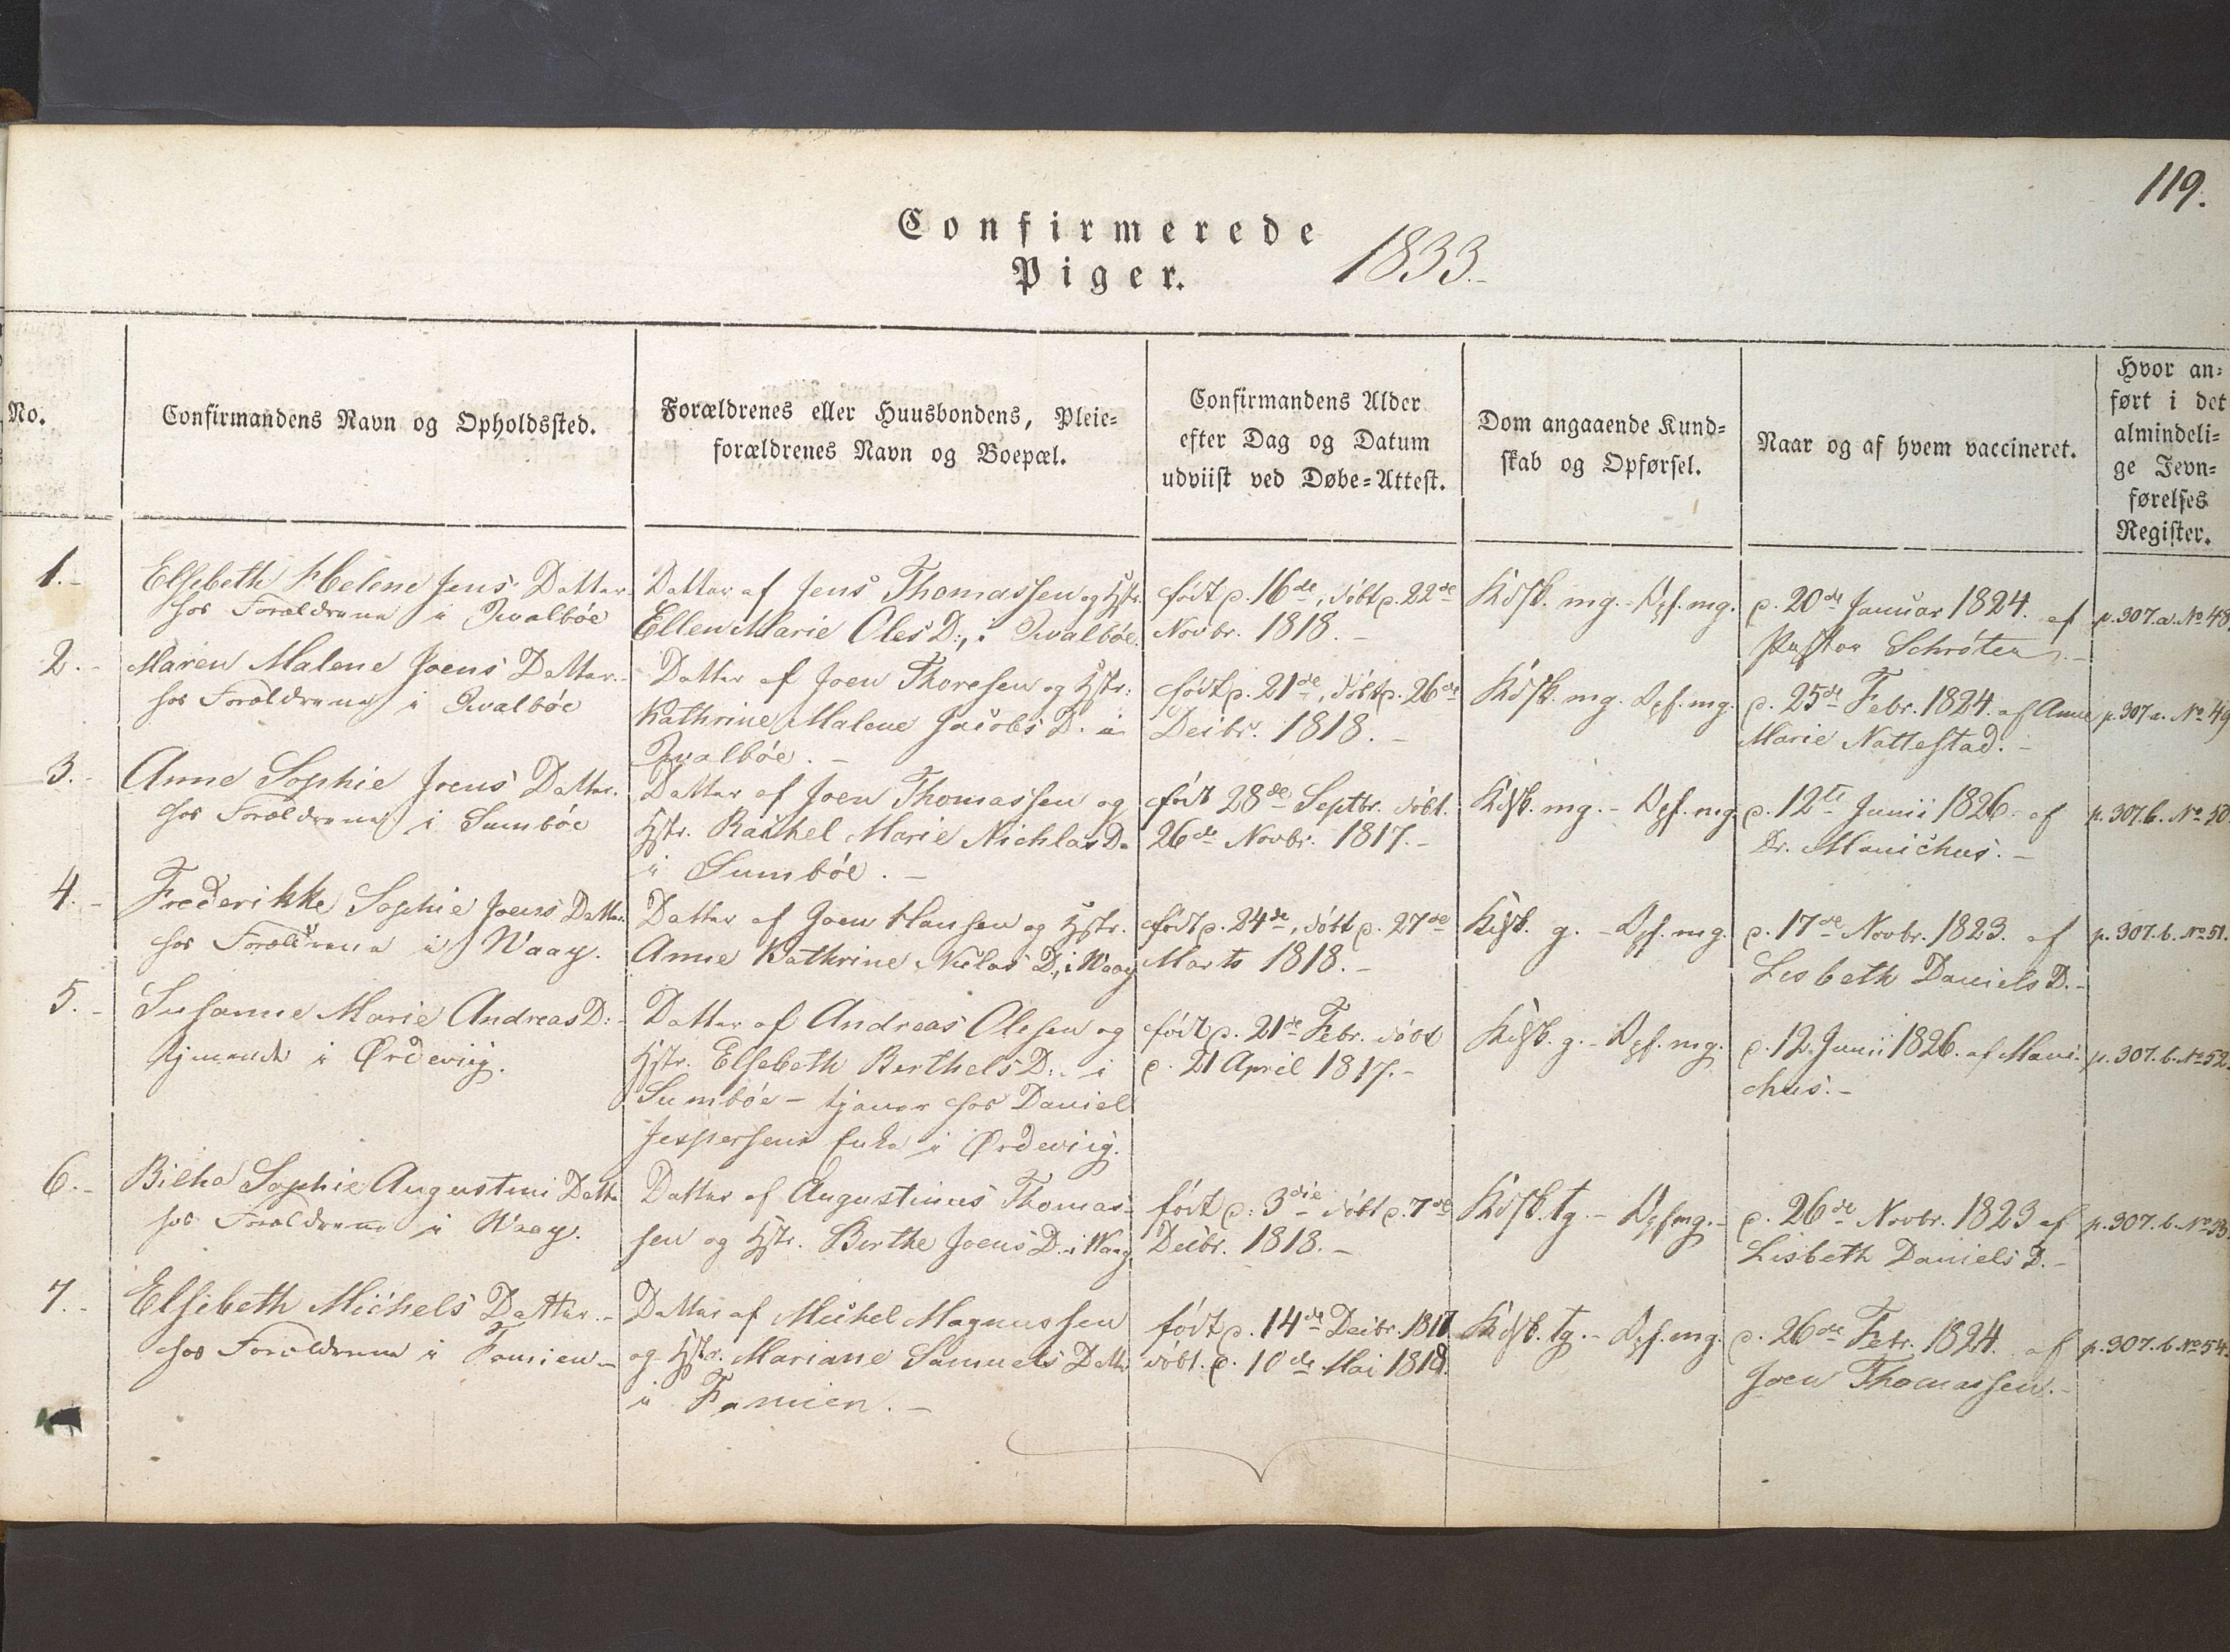 119.
Confirmerede
Piger.
1833.-
No.
Confirmandens Navn og Opholdssted.
Forældrenes eller Huusbondens, Pleie-
forældrenes Navn og Boepæl.
Confirmandens Alder
efter Dag og Datum
udviist ved Døbe-Attest.
Dom angaaende Kund-
skab og Opførsel.
Naar og af hvem vaccineret.
Hvor an-
ført i det
almindeli-
ge Jevn-
førelses
Register.
1.-
Elsebeth Helene Jens Datter.
hos Forældrene i Qvalbøe
Datter af Jens Thomassen og Hstr.
Ellen Marie Oles D:, i Qvalbøe.
født p. 16de, døbt p. 22de
Novbr. 1818.-
Kdsk. mg. - Opf. mg.
p. 20de Januar 1824. af
Pastor Schrøter.-
p. 307. a. No 48.
2.-
Maren Malene Joens Datter.-
hos Forældrene i Qvalbøe
Datter af Joen Thoresen og Hstr:
Kathrine Malene Jacobs D. i
Qvalbøe.-
født p. 21de, døbt p. 26de
Decbr. 1818.-
Kdsk. mg. Opf. mg.
p. 25de Febr. 1824. af Anne
Marie Nattestad.-
p. 307 a. No 49
3.-
Anne Sophie Joens Datter.
hos Forældrene i Sumbøe
Datter af Joen Thomassen og
Hstr. Rachel Marie Nichlas D.
i Sumbøe.-
født 28de Septbr. døbt.
26de Novbr. 1817.-
Kdsk. mg.- Opf. mg
p. 12te Junii 1826. af
Dr. Manichus.-
p. 307. b. No 50.
4.-
Frederikke Sophie Joens Datter.
hos Forældrene i Waag.
Datter af Joen Hansen og Hstr.
Anne Kathrine Niclas D., i Waag
født p. 24de, døbt p. 27de
Marts 1818.-
Kdsk. g. - Opf. mg.
p. 17de Novbr. 1823. af
Lisbeth Daniels D.-
p. 307. b. No 51.
5.-
Susanne Marie Andreas D:-
tjenende i Ørdeviig.
Datter af Andreas Olesen og
Hstr. Elsebeth Berthels D:. i
Sumbøe - tjener hos Daniel
Jespersens Enke i Ørdeviig.
født p. 21de Febr. døbt
p. 21 April 1817.-
Kdsk. g. - Opf. mg.
p. 12. Junii 1826. af Mani-
chus.-
p. 307. b. No 52.
6.-
Bilha Sophie Augustini Datte
hos Forældrene i Waag.
Datter af Augustinus Thomas-
sen og Hstr. Birthe Joens D. i Waag
født p: 3die døbt p. 7de
Decbr. 1818.-
Kdsk. tg. - Opf mg.-
p. 26de Novbr. 1823 af
Lisbeth Daniels D.-
p. 307. b. No 53.
7.-
Elsebeth Michels Datter.-
hos Forældrene i Famien-
Datter af Michel Magnussen
og Hstr. Mariane Samuels Datte
i Famien.-
født p. 14de Decbr. 1817
døbt. p. 10de Mai 1818.
Kdsk. tg.- Opf. mg.
p. 26de Febr. 1824. af
Joen Thomassen.-
p. 307. b. No 54.